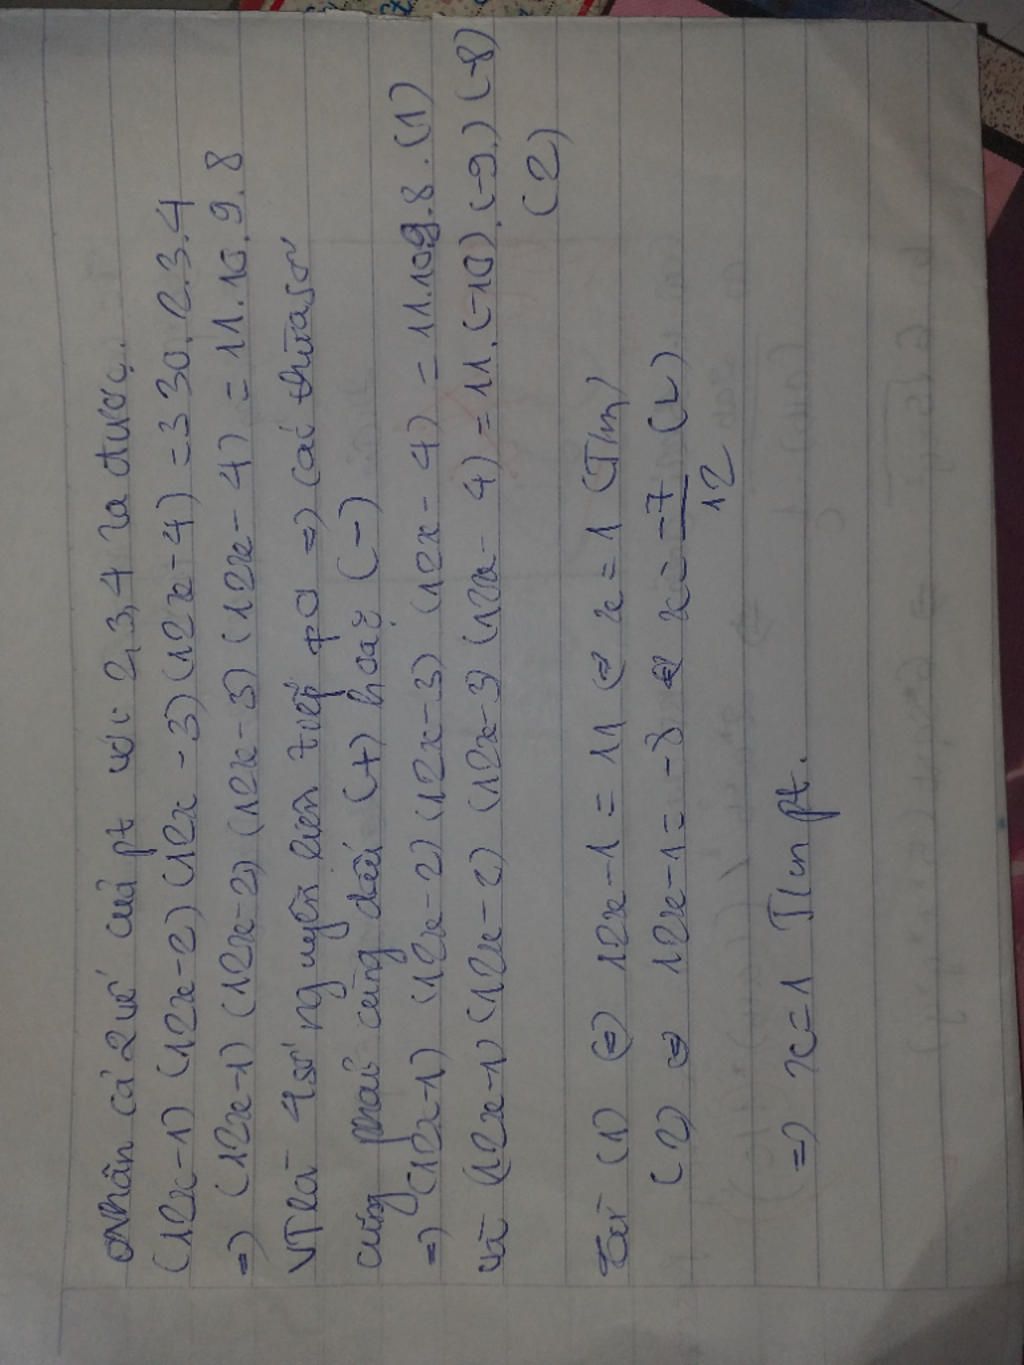 Nhân cả 2 vế của pt với 2,3,4 ta được.
(12x-1)(12x-2)(12x-3)(12x-4)=330.2.3.4
=) (12x-1)(12x-2)(12x-3)(12x-4)=11.10.9.8
VT là 4 số nguyên liên tiếp ≠0 =) các thừa số
cũng phải cùng dấu (+) hoặc (-)
=) (12x-1)(12x-2)(12x-3)(12x-4)=11.10.9.8.(1)
và (12x-1)(12x-2)(12x-3)(12x-4)=11.(-10).(-9.)(-8)
(2)
Từ (1) (=) 12x-1=11 (=) x=1 (Tlm)
(2) (=) 12x-1=-8 (=) x=-7/12 (L)
=) x=1 Tlm pt.